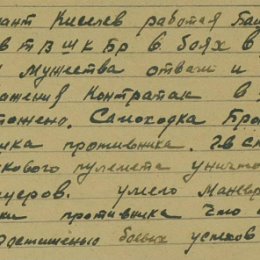 ант Киселев работая Ба
в ТВШКБР в боях в
и мужества отваги и
ражения контратак в
тожено. Самоходка Бро
ика противника.
кового пулемета уничто
церов. умело маневр
ки противника что
достижению боевых успехов